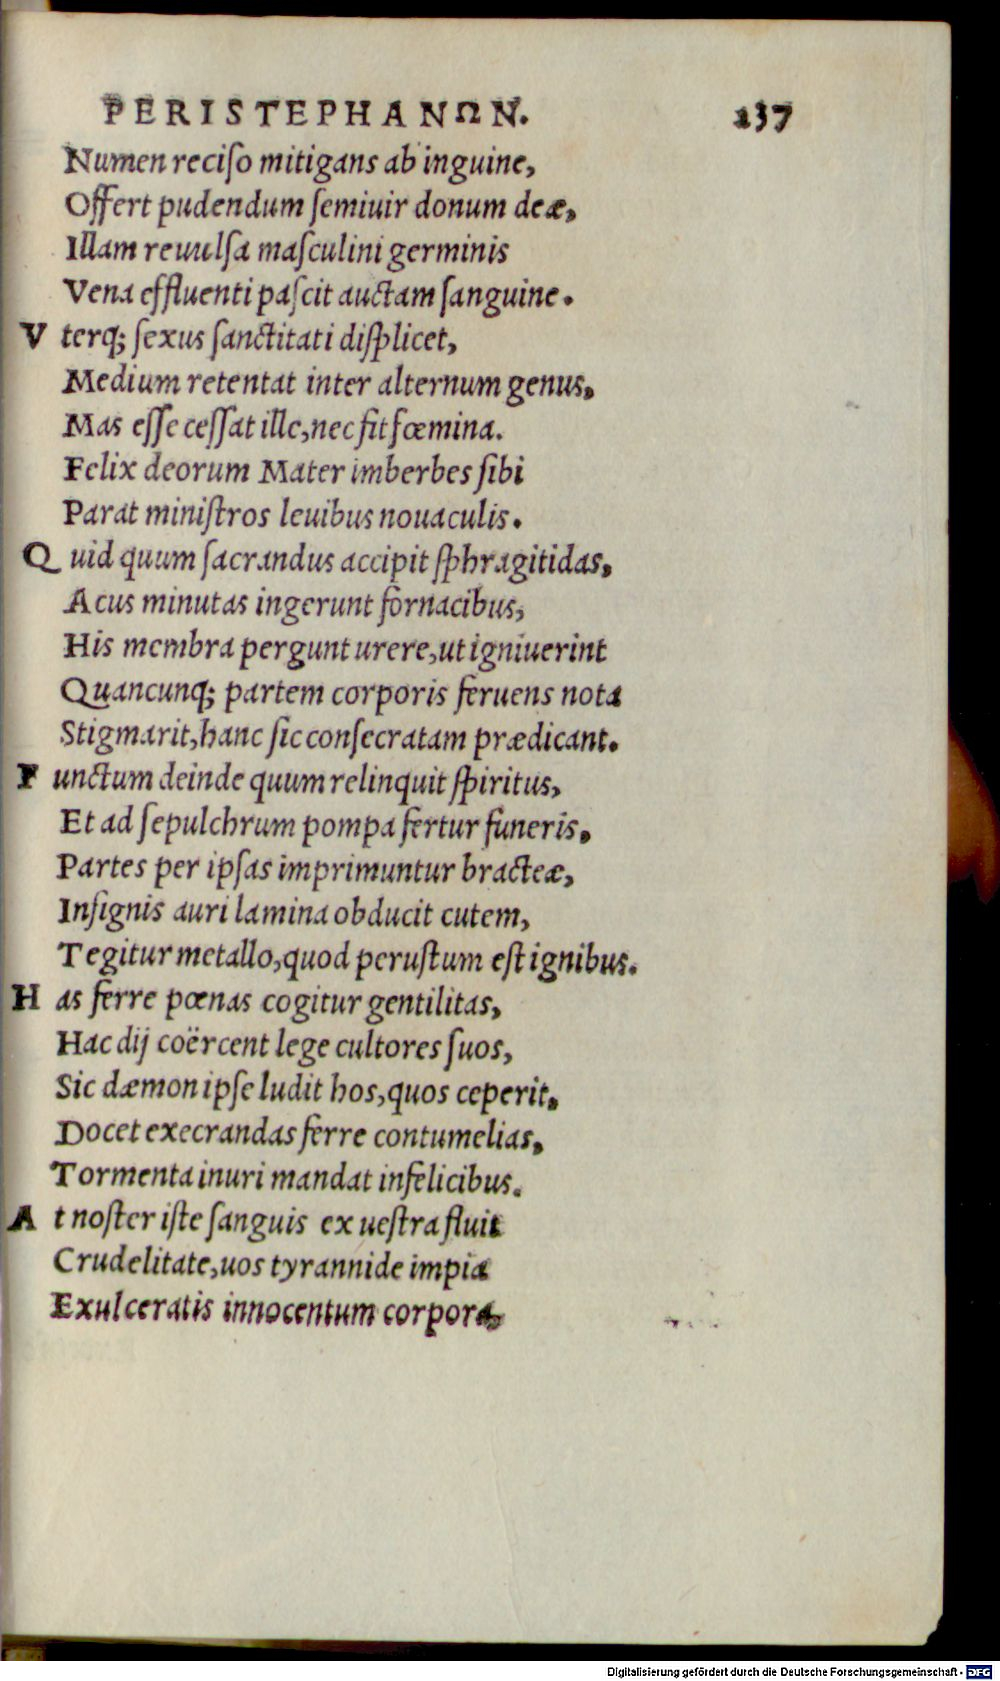 PERISTEPHANΩN. 237
Numen reciſo mitigans ab inguine,
Offert pudendum ſemiuir donum deæ,
Illam reuulſa maſculini germinis
Vena effluenti paſcit auctam ſanguine.
V terq; ſexus ſanctitati diſplicet,
Medium retentat inter alternum genus,
Mas eſſe ceſſat ille, nec fit fœmina.
Felix deorum Mater imberbes ſibi
Parat miniſtros leuibus nouaculis.
Q uid quum ſacrandus accipit ſphragitidas,
Acus minutas ingerunt fornacibus,
His membra pergunt urere, ut igniuerint
Quancunq; partem corporis feruens nota
Stigmarit, hanc ſic conſecratam prædicant.
F unctum deinde quum relinquit ſpiritus,
Et ad ſepulchrum pompa fertur funeris,
Partes per ipſas imprimuntur bracteæ,
Inſignis auri lamina obducit cutem,
Tegitur metallo, quod peruſtum eſt ignibus.
H as ferre pœnas cogitur gentilitas,
Hac dij coërcent lege cultores ſuos,
Sic dæmon ipſe ludit hos, quos ceperit,
Docet execrandas ferre contumelias,
Tormenta inuri mandat infelicibus.
A t noſter iſte ſanguis ex ueſtra fluit
Crudelitate, uos tyrannide impia
Exulceratis innocentum corpora,
Digitalisierung gefördert durch die Deutsche Forschungsgemeinschaft - DFG